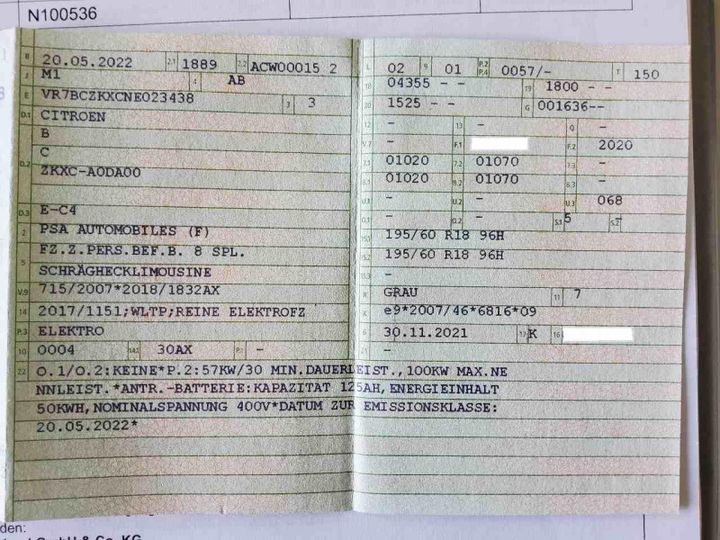 N100536
B 20.05.2022 2.1 1889 2.2 ACW00015 2
J M1 4 AB
E VR7BCZKXCNE023438 3 3
D.1 CITROEN
B
D.2 C
ZKXC-A0DA00
D.3 E-C4
2 PSA AUTOMOBILES (F)
5 FZ.Z.PERS.BEF.B. 8 SPL.
SCHRÄGHECKLIMOUSINE
V.9 715/2007*2018/1832AX
14 2017/1151;WLTP;REINE ELEKTROFZ
P.3 ELEKTRO
10 0004 14.1 30AX P.1 -
L 02 9 01 P.2 P.4 0057/- T 150
18 04355 - - 19 1800 - -
20 1525 - - G 001636--
12 - 13 - Q -
V.7 - F.1 F.2 2020
7.1 01020 7.2 01070 7.3 -
8.1 01020 8.2 01070 8.3 -
U.1 - U.2 - U.3 068
O.1 - O.2 - S.1 5 S.2 -
15.1 195/60 R18 96H
15.2 195/60 R18 96H
15.3 -
R GRAU 11 7
K e9*2007/46*6816*09
6 30.11.2021 17 K 16
21 -
22 O.1/O.2:KEINE*P.2:57KW/30 MIN.DAUERLEIST.,100KW MAX.NE
NNLEIST.*ANTR.-BATTERIE:KAPAZITAT 125AH,ENERGIEINHALT
50KWH,NOMINALSPANNUNG 400V*DATUM ZUR EMISSIONSKLASSE:
20.05.2022*
den:
GmbH & Co. KG